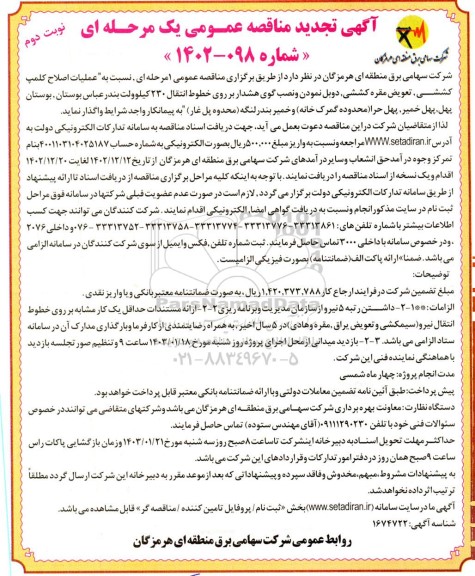 نوبت دوم
آگهی تجدید مناقصه عمومی یک مرحله ای
« شماره ۰۹۸-۱۴۰۲ »
شرکت سهامی برق منطقه ای هرمزگان
شرکت سهامی برق منطقه ای هرمزگان در نظر دارد از طریق برگزاری مناقصه عمومی ۱مرحله ای ، نسبت به "عملیات اصلاح کلمپ
کششی ، تعویض مقره کششی، دوبل نمودن ونصب گوی هشدار بر روی خطوط انتقال ۲۳۰ کیلوولت بندرعباس بوستان ، بوستان
پهل، پهل خمیر، پهل حرا(محدوده گمرک خانه) وخمیر بندرلنگه (محدوه پل غار) "به پیمانکار واجد شرایط واگذار نماید.
لذا از متقاضیان شرکت در این مناقصه دعوت بعمل می آید، جهت دریافت اسناد مناقصه به سامانه تدارکات الکترونیکی دولت به
آدرس WWW.setadiran.ir مراجعه ونسبت به واریز مبلغ ۵۰۰,۰۰۰ریال بصورت الکترونیکی به شماره حساب ۴۰۰۱۱۰۳۱۰۴۰۲۵۱۸۷بنام
تمرکز وجوه درآمد حق انشعاب وسایر درآمدهای شرکت سهامی برق منطقه ای هرمزگان از تاریخ ۱۴۰۲/۱۲/۱۲ لغایت ۱۴۰۲/۱۲/۲۰
اقدام ویک نسخه از اسناد مناقصه را دریافت نمایند . با توجه به اینکه کلیه مراحل برگزاری مناقصه از دریافت اسناد تا ارائه پیشنهاد
از طریق سامانه تدارکات الکترونیکی دولت برگزار می گردد . لازم است در صورت عدم عضویت قبلی شرکتها در سامانه فوق مراحل
ثبت نام در سایت مذکور انجام ونسبت به دریافت گواهی امضا، الکترونیکی اقدام نمایند . شرکت کنندگان می توانند جهت کسب
اطلاعات بیشتر با شماره تلفن های : ۳۳۳۱۳۸۶۱-۳۳۳۱۳۷۷۶-۳۳۳۱۳۷۳۳-۳۳۳۱۳۷۵۸-۳۳۳۱۳۷۵۲-۰۷۶ داخلی ۲۰۷۶
.ودر خصوص سامانه با داخلی ۳۰۰۰ تماس حاصل فرمایند. ثبت شماره تلفن ،فکس وایمیل از سوی شرکت کنندگان در سامانه الزامی
می باشد. ضمنا" ارائه پاکت الف(ضمانتنامه) بصورت فیزیکی الزامیست.
توضیحات:
مبلغ تضمین شرکت در فرایند ارجاع کار ۱,۴۲۰,۳۷۳,۷۸۸ ریال، به صورت ضمانتنامه معتبر بانکی و یا واریز نقدی.
الزامات: **۱-۲- داشتن رتبه ۵ نیرو از سازمان مدیریت وبرنامه ریزی ۲-۲- ارائه مستندات حداقل یک کار مشابه بر روی خطوط
انتقال نیرو (سیمکشی و تعویض یراق ،مقره وهادی) در ۵سال اخیر ،به همراه رضایتمندی از کارفرما وبارگذاری مدارک آن در سامانه
ستاد الزامی می باشد . ۳-۲- بازدید میدانی از محل اجرای پروژه روز شنبه مورخ ۱۴۰۳/۰۱/۱۸ ساعت ۹ و تنظیم صورتجلسه بازدید
با هماهنگی نماینده فنی این شرکت .
مدت انجام پروژه: چهار ماه شمسی
پیش پرداخت: طبق آئین نامه تضمین معاملات دولتی وبا ارائه ضمانتنامه بانکی معتبر قابل پرداخت خواهد بود.
دستگاه نظارت: معاونت بهره برداری شرکت سهامی برق منطقه ای هرمزگان می باشد وشرکتهای متقاضی می توانند در خصوص
سئوالات فنی خود با تلفن ۰۹۱۱۱۲۹۰۲۳۰(آقای مهندس ستوده) تماس حاصل فرمایند.
حداکثر مهلت تحویل اسناد به دبیرخانه اینشرکت تا ساعت ۸ صبح روز سه شنبه مورخ ۱۴۰۳/۰۱/۲۱ و زمان بازگشایی پاکات راس
ساعت ۹ صبح همان روز در دفتر امور تدارکات وقراردادهای این شرکت می باشد.
به پیشنهادات مشروط، مبهم، مخدوش وفاقد سپرده و پیشنهاداتی که بعد از موعد مقرر به دبیرخانه این شرکت ارسال گردد مطلقاً
ترتیب اثر داده نخواهد شد.
آگهی ما در سایت سامانه (www.setadiran.ir) بخش «ثبت نام / پروفایل تامین کننده / مناقصه گر» قابل مشاهده می باشد.
شناسه آگهی: ۱۶۷۴۷۲۲
روابط عمومی شرکت سهامی برق منطقه ای هرمزگان
ParsNamadData
۰۲۱-۸۸۳۴۹۶۷۰-۵